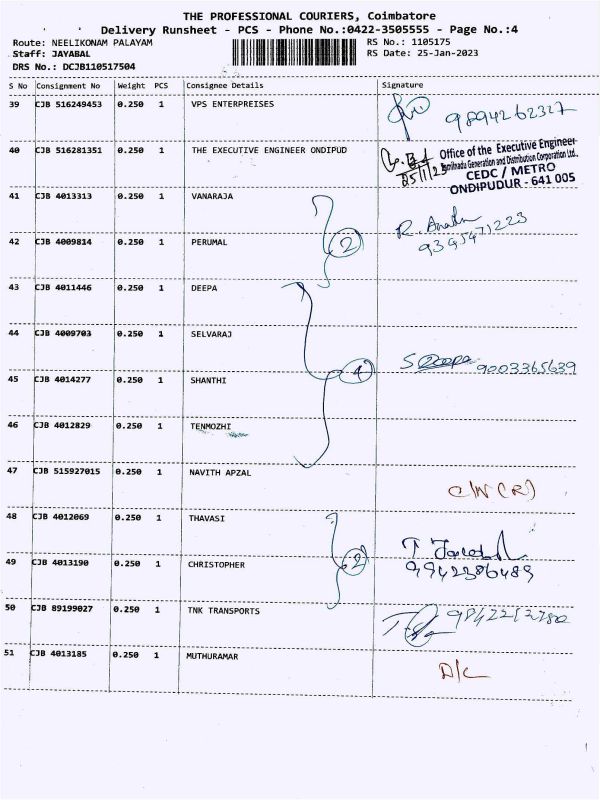 THE PROFESSIONAL COURIERS, Coimbatore
Delivery Runsheet - PCS - Phone No.:0422-3505555 - Page No.:4
Route: NEELIKONAM PALAYAM
Staff: JAYABAL
DRS No.: DCJB110517504
RS No.: 1105175
RS Date: 25-Jan-2023
S No Consignment No Weight PCS Consignee Details Signature
39 CJB 516249453 0.250 1 VPS ENTERPREISES 9894262327
40 CJB 516281351 0.250 1 THE EXECUTIVE ENGINEER ONDIPUD
25/1/23
Office of the Executive Engineer
Tamilnadu Generation and Distribution Corporation Ltd.,
CEDC / METRO
ONDIPUDUR - 641 005
41 CJB 4013313 0.250 1 VANARAJA
2
42 CJB 4009814 0.250 1 PERUMAL 9395471223
43 CJB 4011446 0.250 1 DEEPA
44 CJB 4009703 0.250 1 SELVARAJ
4
S Deepa 9003365639
45 CJB 4014277 0.250 1 SHANTHI
46 CJB 4012829 0.250 1 TENMOZHI
47 CJB 515927015 0.250 1 NAVITH APZAL
48 CJB 4012069 0.250 1 THAVASI
2
49 CJB 4013190 0.250 1 CHRISTOPHER 9942386489
50 CJB 89199027 0.250 1 TNK TRANSPORTS
51 CJB 4013185 0.250 1 MUTHURAMAR D/C